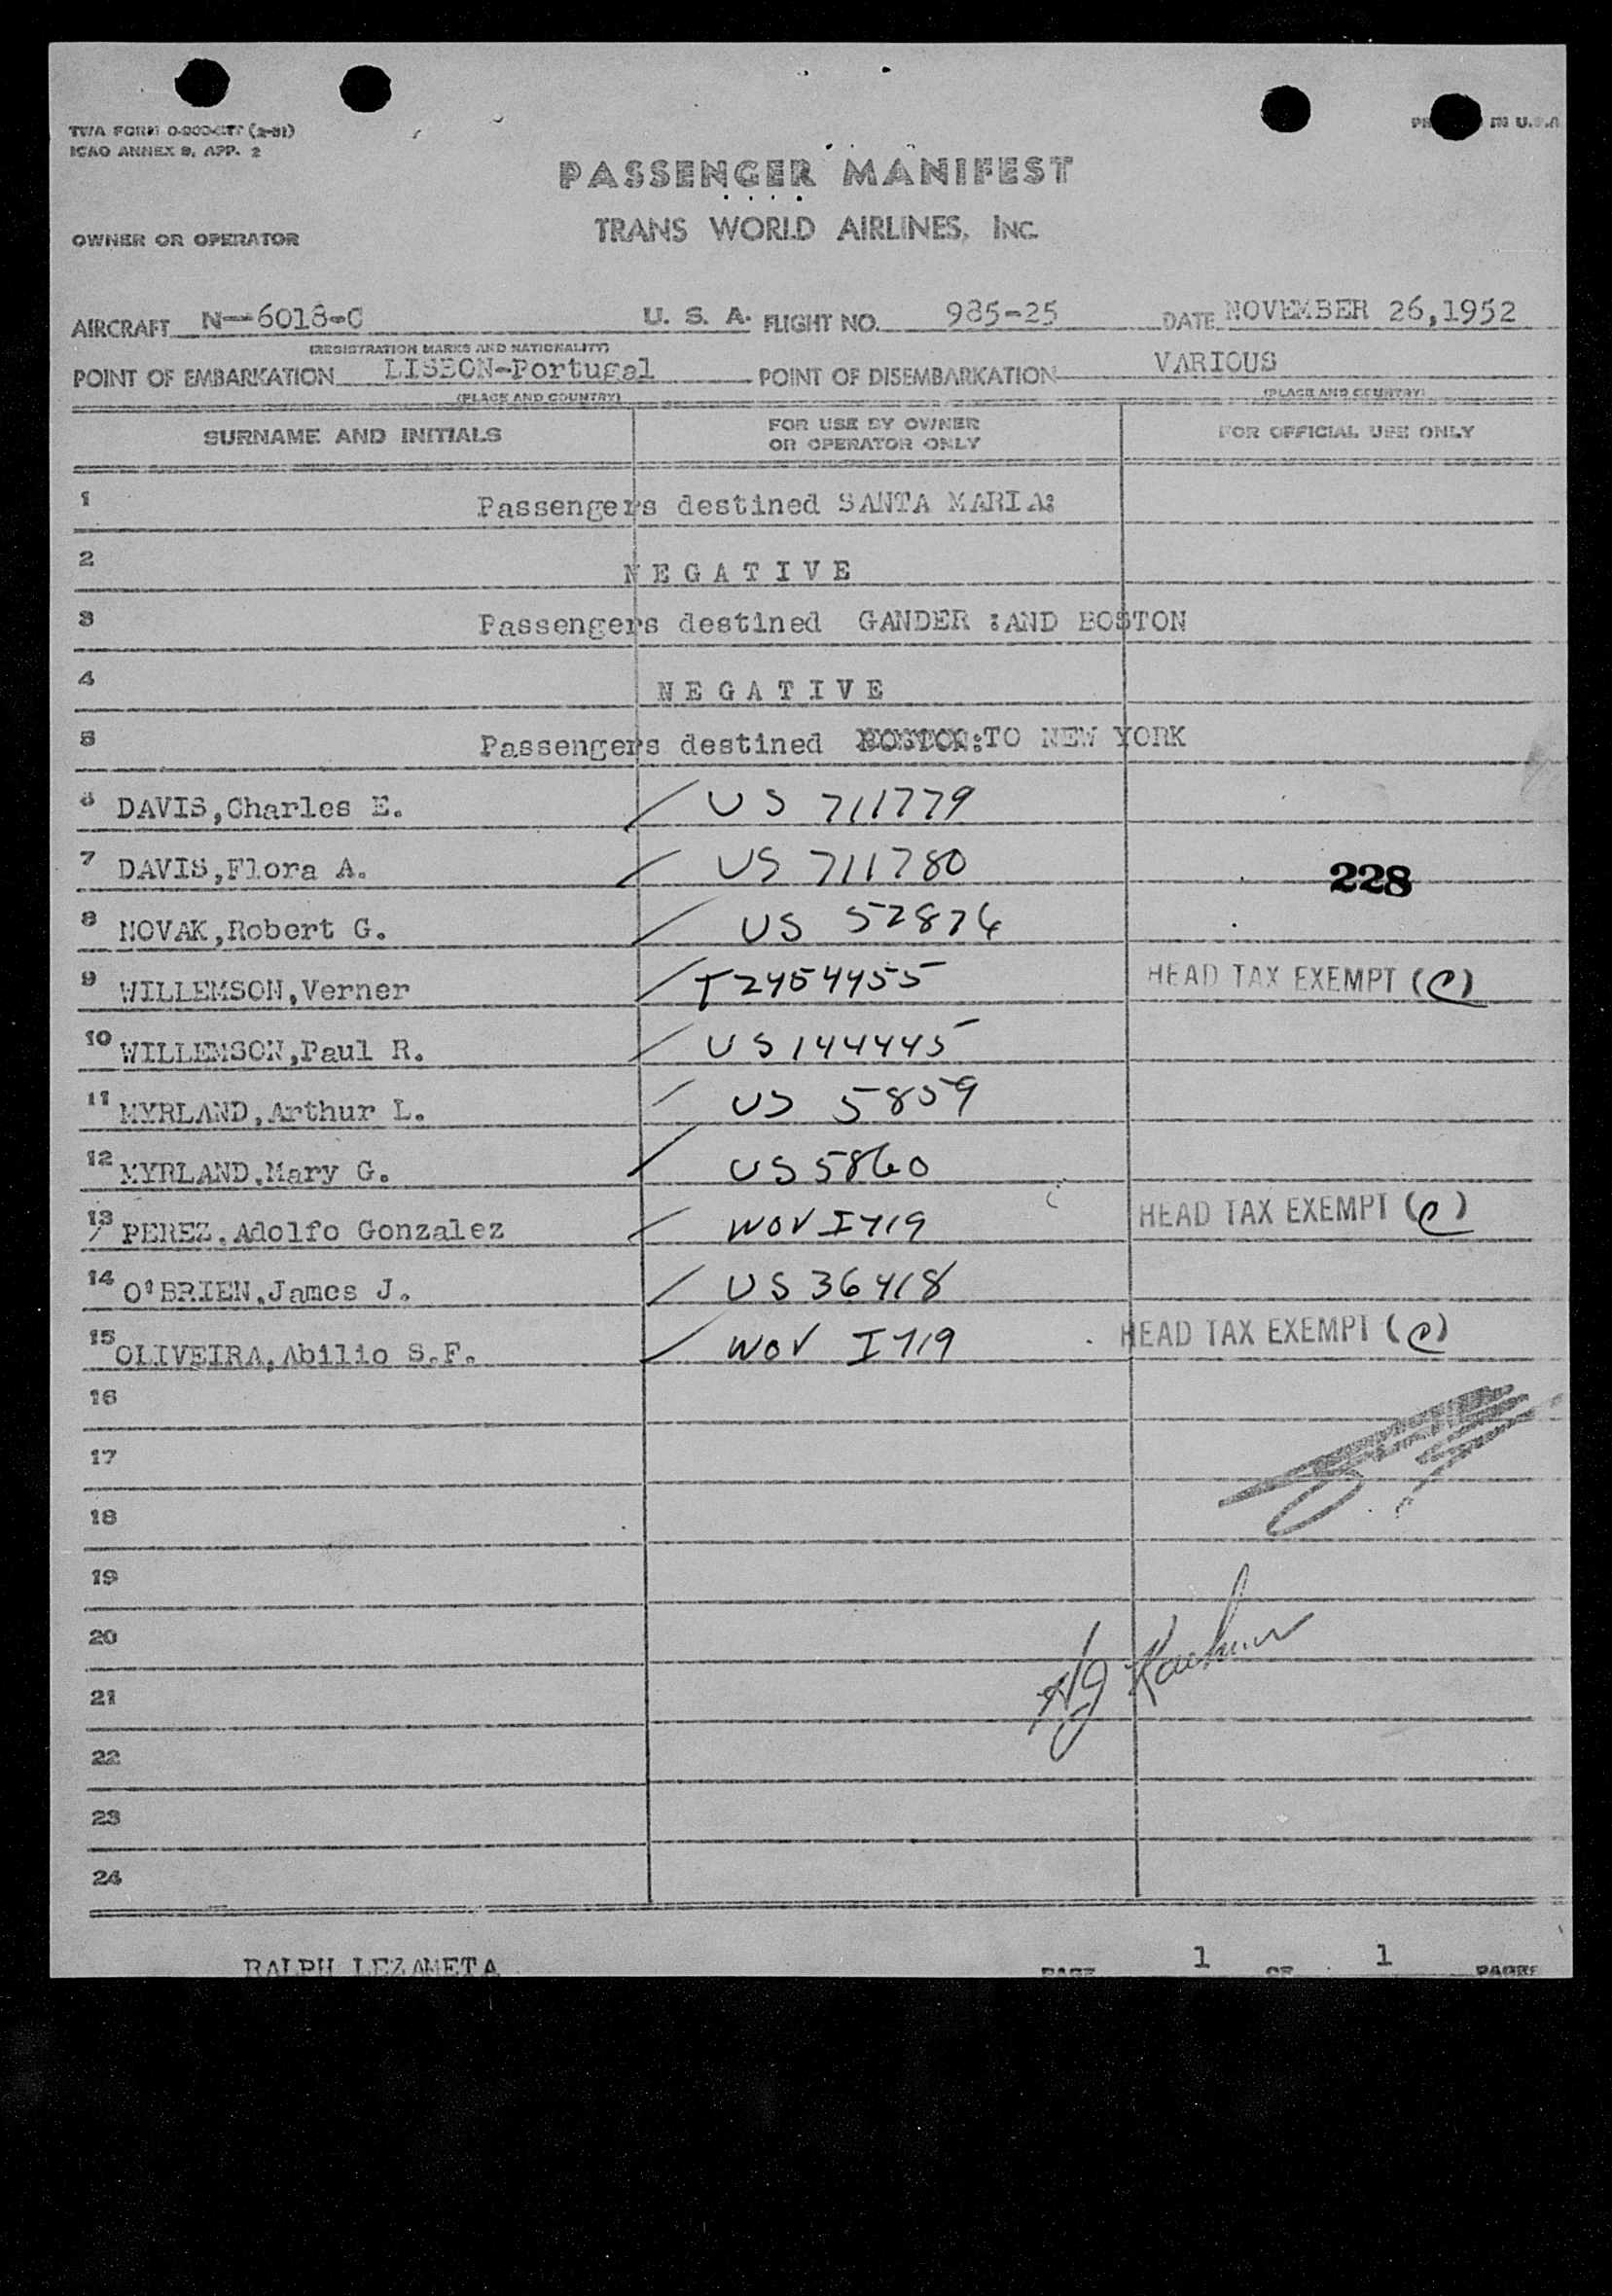 TWA FORM
ICAO ANNEX 9, APP. 2
IN U.S.A
PASSENGER MANIFEST
TRANS WORLD AIRLINES, INC.
OWNER OR OPERATOR
AIRCRAFT N--6018-C U. S. A. FLIGHT NO. 985-25 DATE NOVEMBER 26,1952
(REGISTRATION MARKS AND NATIONALITY)
POINT OF EMBARKATION LISBON-Portugal POINT OF DISEMBARKATION VARIOUS
(PLACE AND COUNTRY) (PLACE AND COUNTRY)
SURNAME AND INITIALS FOR USE BY OWNER OR OPERATOR ONLY FOR OFFICIAL USE ONLY
1 Passengers destined SANTA MARIA:
2 N E G A T I V E
3 Passengers destined GANDER :AND BOSTON
4 N E G A T I V E
5 Passengers destined BOSTON:TO NEW YORK
6 DAVIS,Charles E. / US 711779
7 DAVIS,Flora A. / US 711780 228
8 NOVAK,Robert G. / US 52876
9 WILLEMSON,Verner / T2454455 HEAD TAX EXEMPT (C)
10 WILLEMSON,Paul R. / US 144445
11 MYRLAND,Arthur L. / US 5859
12 MYRLAND,Mary G. / US 5860
13 PEREZ,Adolfo Gonzalez / WOV I419 HEAD TAX EXEMPT (C)
14 O'BRIEN,James J. / US 36418
15 OLIVEIRA,Abilio S.F. / WOV I419 HEAD TAX EXEMPT (C)
16
17
18
19
20
21
22
23
24
RALPH LEZAMETA PAGE 1 OF 1 PAGES